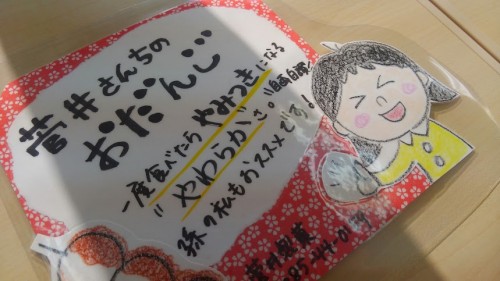 菅井さんちの
おだんご
一度食べたら やみつきになる
"やわらかさ。"
孫の私もおススメです!